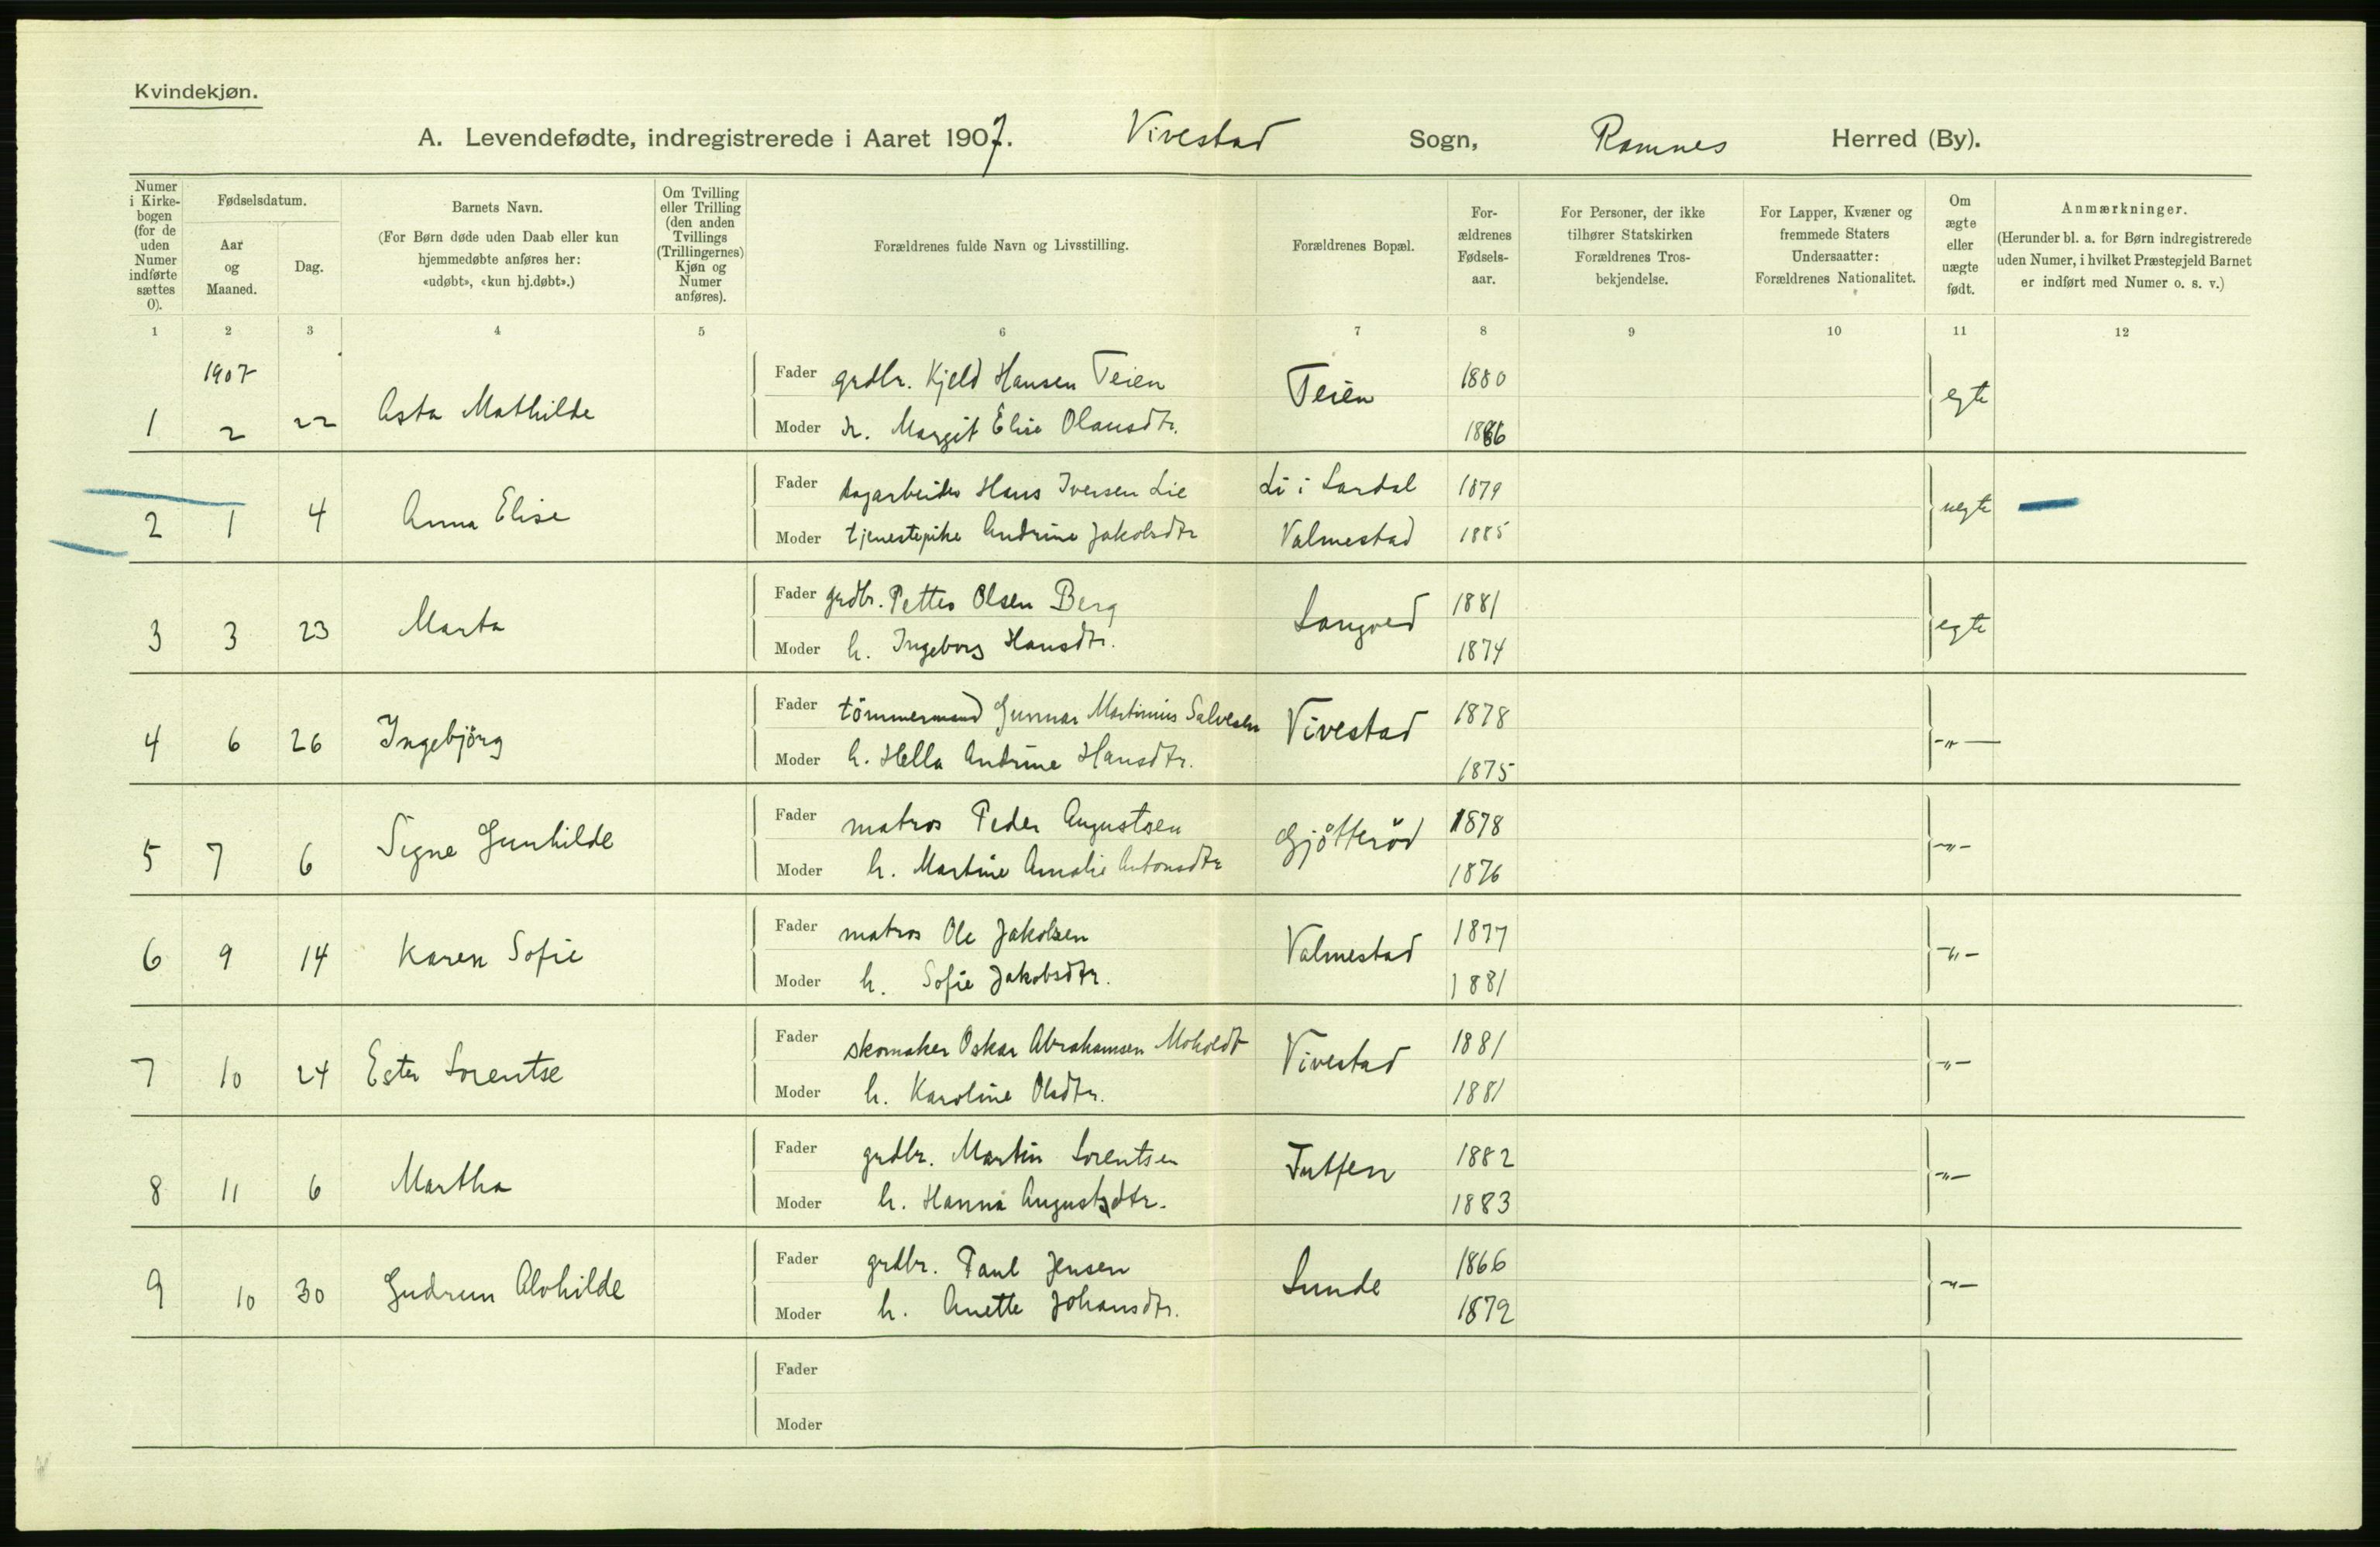 Kvindekjøn.
A. Levendefødte, indregistrerede i Aaret 1907. Vivestad Sogn, Ramnes Herred (By).
Numer i Kirke-bogen (for de uden Numer indførte sættes 0).
Fødselsdatum.
Aar og Maaned.
Dag.
Barnets Navn.
(For Børn døde uden Daab eller kun hjemmedøbte anføres her: «udøbt», «kun hj.døbt».)
Om Tvilling eller Trilling (den anden Tvillings (Trillingernes) Kjøn og Numer anføres).
Forældrenes fulde Navn og Livsstilling.
Forældrenes Bopæl.
For-ældrenes Fødsels-aar.
For Personer, der ikke tilhører Statskirken Forældrenes Tros-bekjendelse.
For Lapper, Kvæner og fremmede Staters Undersaatter: Forældrenes Nationalitet.
Om ægte eller uægte født.
Anmærkninger.
(Herunder bl. a. for Børn indregistrerede uden Numer, i hvilket Præstegjeld Barnet er indført med Numer o. s. v.)
1 2 3 4 5 6 7 8 9 10 11 12
1907
1 2 22 Asta Mathilde
Fader grdbr. Kjeld Hansen Teien Teien 1880 egte
Moder h. Margit Elise Olausdtr. 1886
2 1 4 Anna Elise
Fader dagarbeider Hans Iversen Lie Li i Lardal 1879 uegte
Moder tjenestepike Andrine Jakobsdtr Valmestad 1885
3 3 23 Marta
Fader grdbr. Petter Olsen Berg Langved 1881 egte
Moder h. Ingeborg Hansdtr. 1874
4 6 26 Ingebjörg
Fader tömmermand Gunnar Martinius Salvesen Vivestad 1878 -"-
Moder h. Hella Andrine Hansdtr. 1875
5 7 6 Signe Gunhilde
Fader matros Peder Augustsen Gjötteröd 1878 -"-
Moder h. Martine Amalie Antonsdtr 1876
6 9 14 Karen Sofie
Fader matros Ole Jakobsen Valmestad 1877 -"-
Moder h. Sofie Jakobsdtr. 1881
7 10 24 Ester Lorentse
Fader skomaker Oskar Abrahamsen Moholdt Vivestad 1881 -"-
Moder h. Karoline Olsdtr. 1881
8 11 6 Martha
Fader grdbr. Martin Lorentsen 1882 -"-
Moder h. Hanna Augustsdtr. 1883
9 10 30 Gudrun Alvhilde
Fader grdbr. Paul Jensen Sunde 1866 -"-
Moder h. Anette Johansdtr. 1872
Fader
Moder